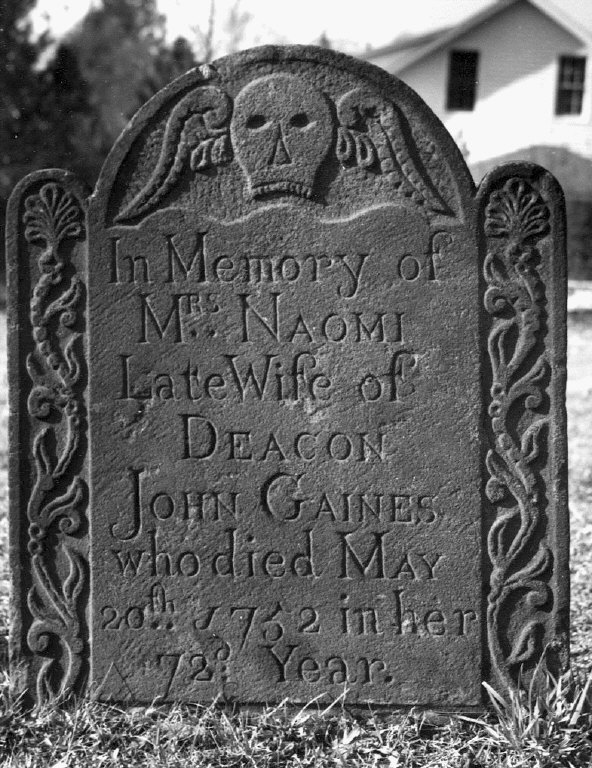 In Memory of
Mrs. Naomi
Late Wife of
Deacon
John Gaines
who died May
20th. 1752 in her
72d Year.